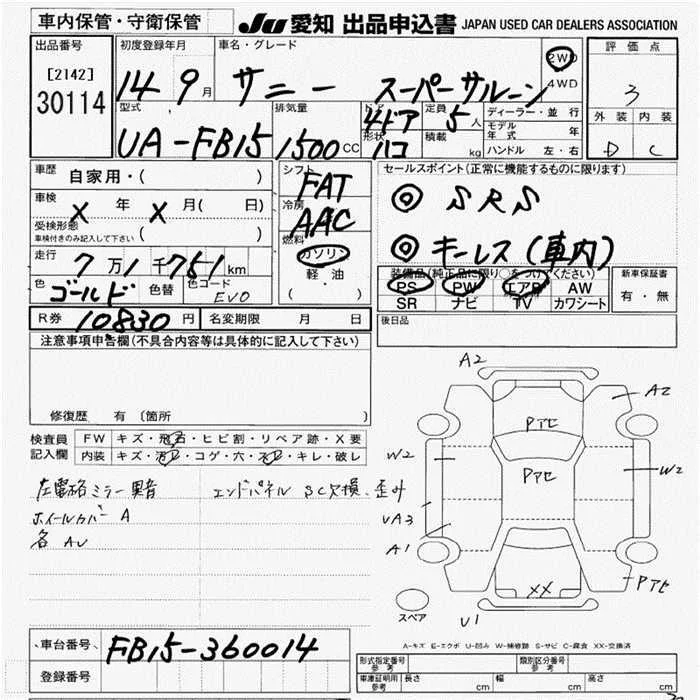 車内保管・守衛保管
JU 愛知 出品申込書 JAPAN USED CAR DEALERS ASSOCIATION
出品番号
[2142]
30114
初度登録年月
14 9月
車名・グレード
サニー スーパーサルーン
2WD
4WD
評価点
3
外装 内装
D C
型式
UA-FB15
排気量
1500 CC
ドア
4ドア
形状
ハコ
定員
5人
積載
kg
ディーラー・並行
モデル年式 年
ハンドル 左・右
車歴
自家用・( )
車検
X 年 X 月( 日)
受検形態
車検付きのみ記入して下さい ( )
走行
7万1千751km
色
ゴールド
色替
色コード
EV0
シフト
FAT
冷房
AAC
燃料
ガソリン
軽油
( )
セールスポイント(正常に機能するものに限ります)
◎ SRS
◎ キーレス(車内)
装備品(純正品に限り○をつけてください)
PS PW エアB AW
SR ナビ TV カワシート
新車保証書
有・無
R券 10830円
名変期限 月 日
後日品
注意事項申告欄(不具合内容等は具体的に記入して下さい)
修復歴 有 〔箇所 〕
検査員
記入欄
FW キズ・飛石・ヒビ割・リペア跡・X要
内装 キズ・汚レ・コゲ・穴・スレ・キレ・破レ
左電格ミラー異音
エンドパネル SC欠損、歪み
ホイールカバー A
各 AU
A2
A2
Pアセ
W2
Pアセ
W2
UA3
A1
XX
Pアセ
スペア
U1
A-キズ E-エクボ U-凹み W-補修跡 S-サビ C-腐食 XX-交換済
車台番号
FB15-360014
登録番号
形式指定番号
参考
類別区分番号
参考
車庫証明用
参考
長さ cm
幅 cm
高さ cm